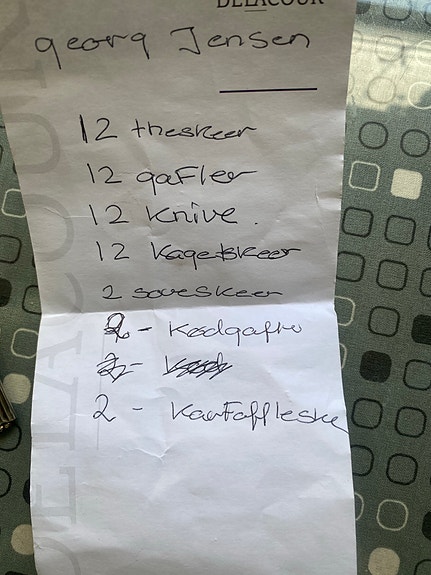 DELACOUR
georg Jensen
12 theskeer
12 gafler
12 knive.
12 kageskeer
2 soveskeer
2 - Kødgafro
2 - Kartoffleske
DELACOUR